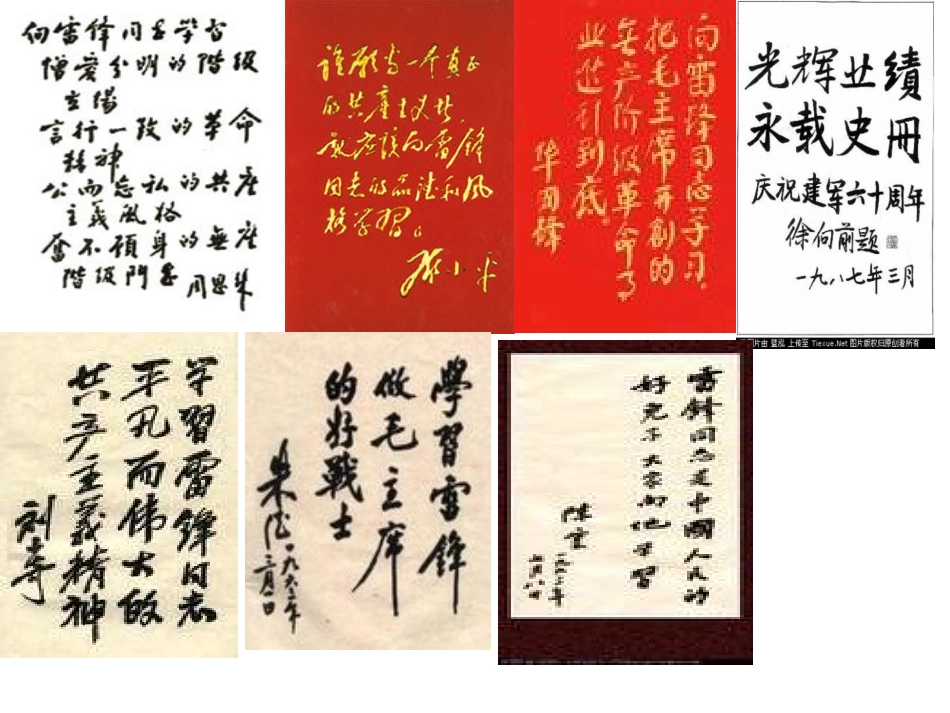 向雷锋同志学习
憎爱分明的階级
立场
言行一致的革命
精神
公而忘私的共产
主義風格
奋不顧身的無产
階级鬥志
周恩来
谁愿当一个真正
的共產主义者,
就应该向雷锋
同志的品德和风
格学習。
邓小平
向雷锋同志学习,
把毛主席开创的
无产阶级革命事
业进行到底。
华国锋
光辉业績
永载史冊
庆祝建军六十周年
徐向前题
一九八七年三月
片由 蓝泓 上传至 Tiexue.Net 图片版权归原创者所有
学習雷锋同志
平凡而伟大的
共产主義精神
刘少奇
學習雷锋
做毛主席
的好戰士
朱德
一九六三年
雷锋同志是中國人民的
好兒子大家向他学習
陈雲